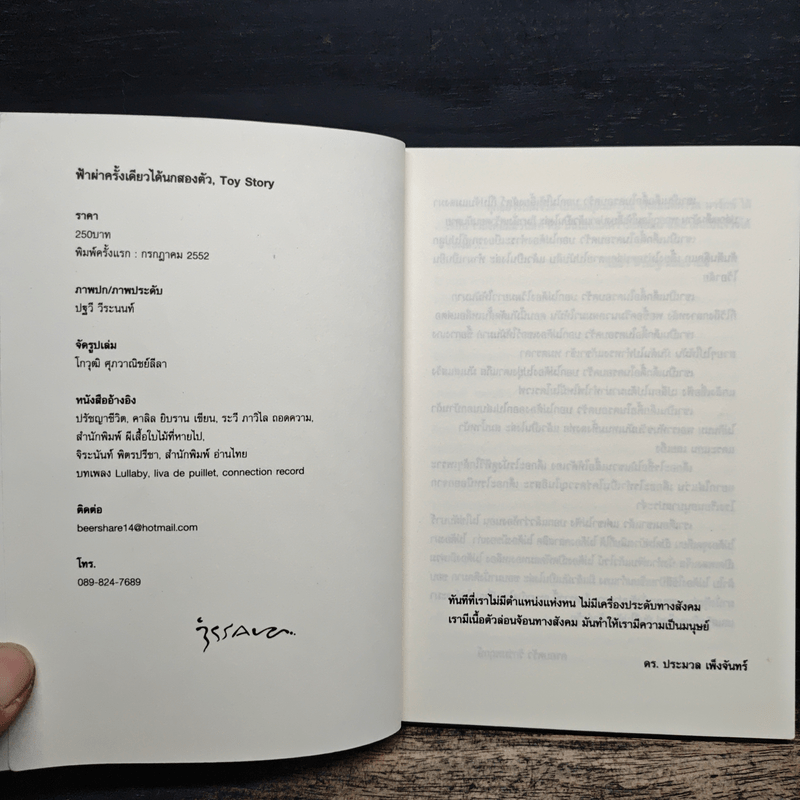 ฟ้าผ่าครั้งเดียวได้นกสองตัว, Toy Story
ราคา
250บาท
พิมพ์ครั้งแรก : กรกฎาคม 2552
ภาพปก/ภาพประดับ
ปฐวี วีระนนท์
จัดรูปเล่ม
โกวุฒิ ศุภวาณิชย์ลีลา
หนังสืออ้างอิง
ปรัชญาชีวิต, คาลิล ยิบราน เขียน, ระวี ภาวิไล ถอดความ,
สำนักพิมพ์ ผีเสื้อใบไม้ที่หายไป,
จิระนันท์ พิตรปรีชา, สำนักพิมพ์ อ่านไทย
บทเพลง Lullaby, liva de puillet, connection record
ติดต่อ
beershare14@hotmail.com
โทร.
089-824-7689
ทันทีที่เราไม่มีตำแหน่งแห่งหน ไม่มีเครื่องประดับทางสังคม
เรามีเนื้อตัวล่อนจ้อนทางสังคม มันทำให้เรามีความเป็นมนุษย์
ดร. ประมวล เพ็งจันทร์